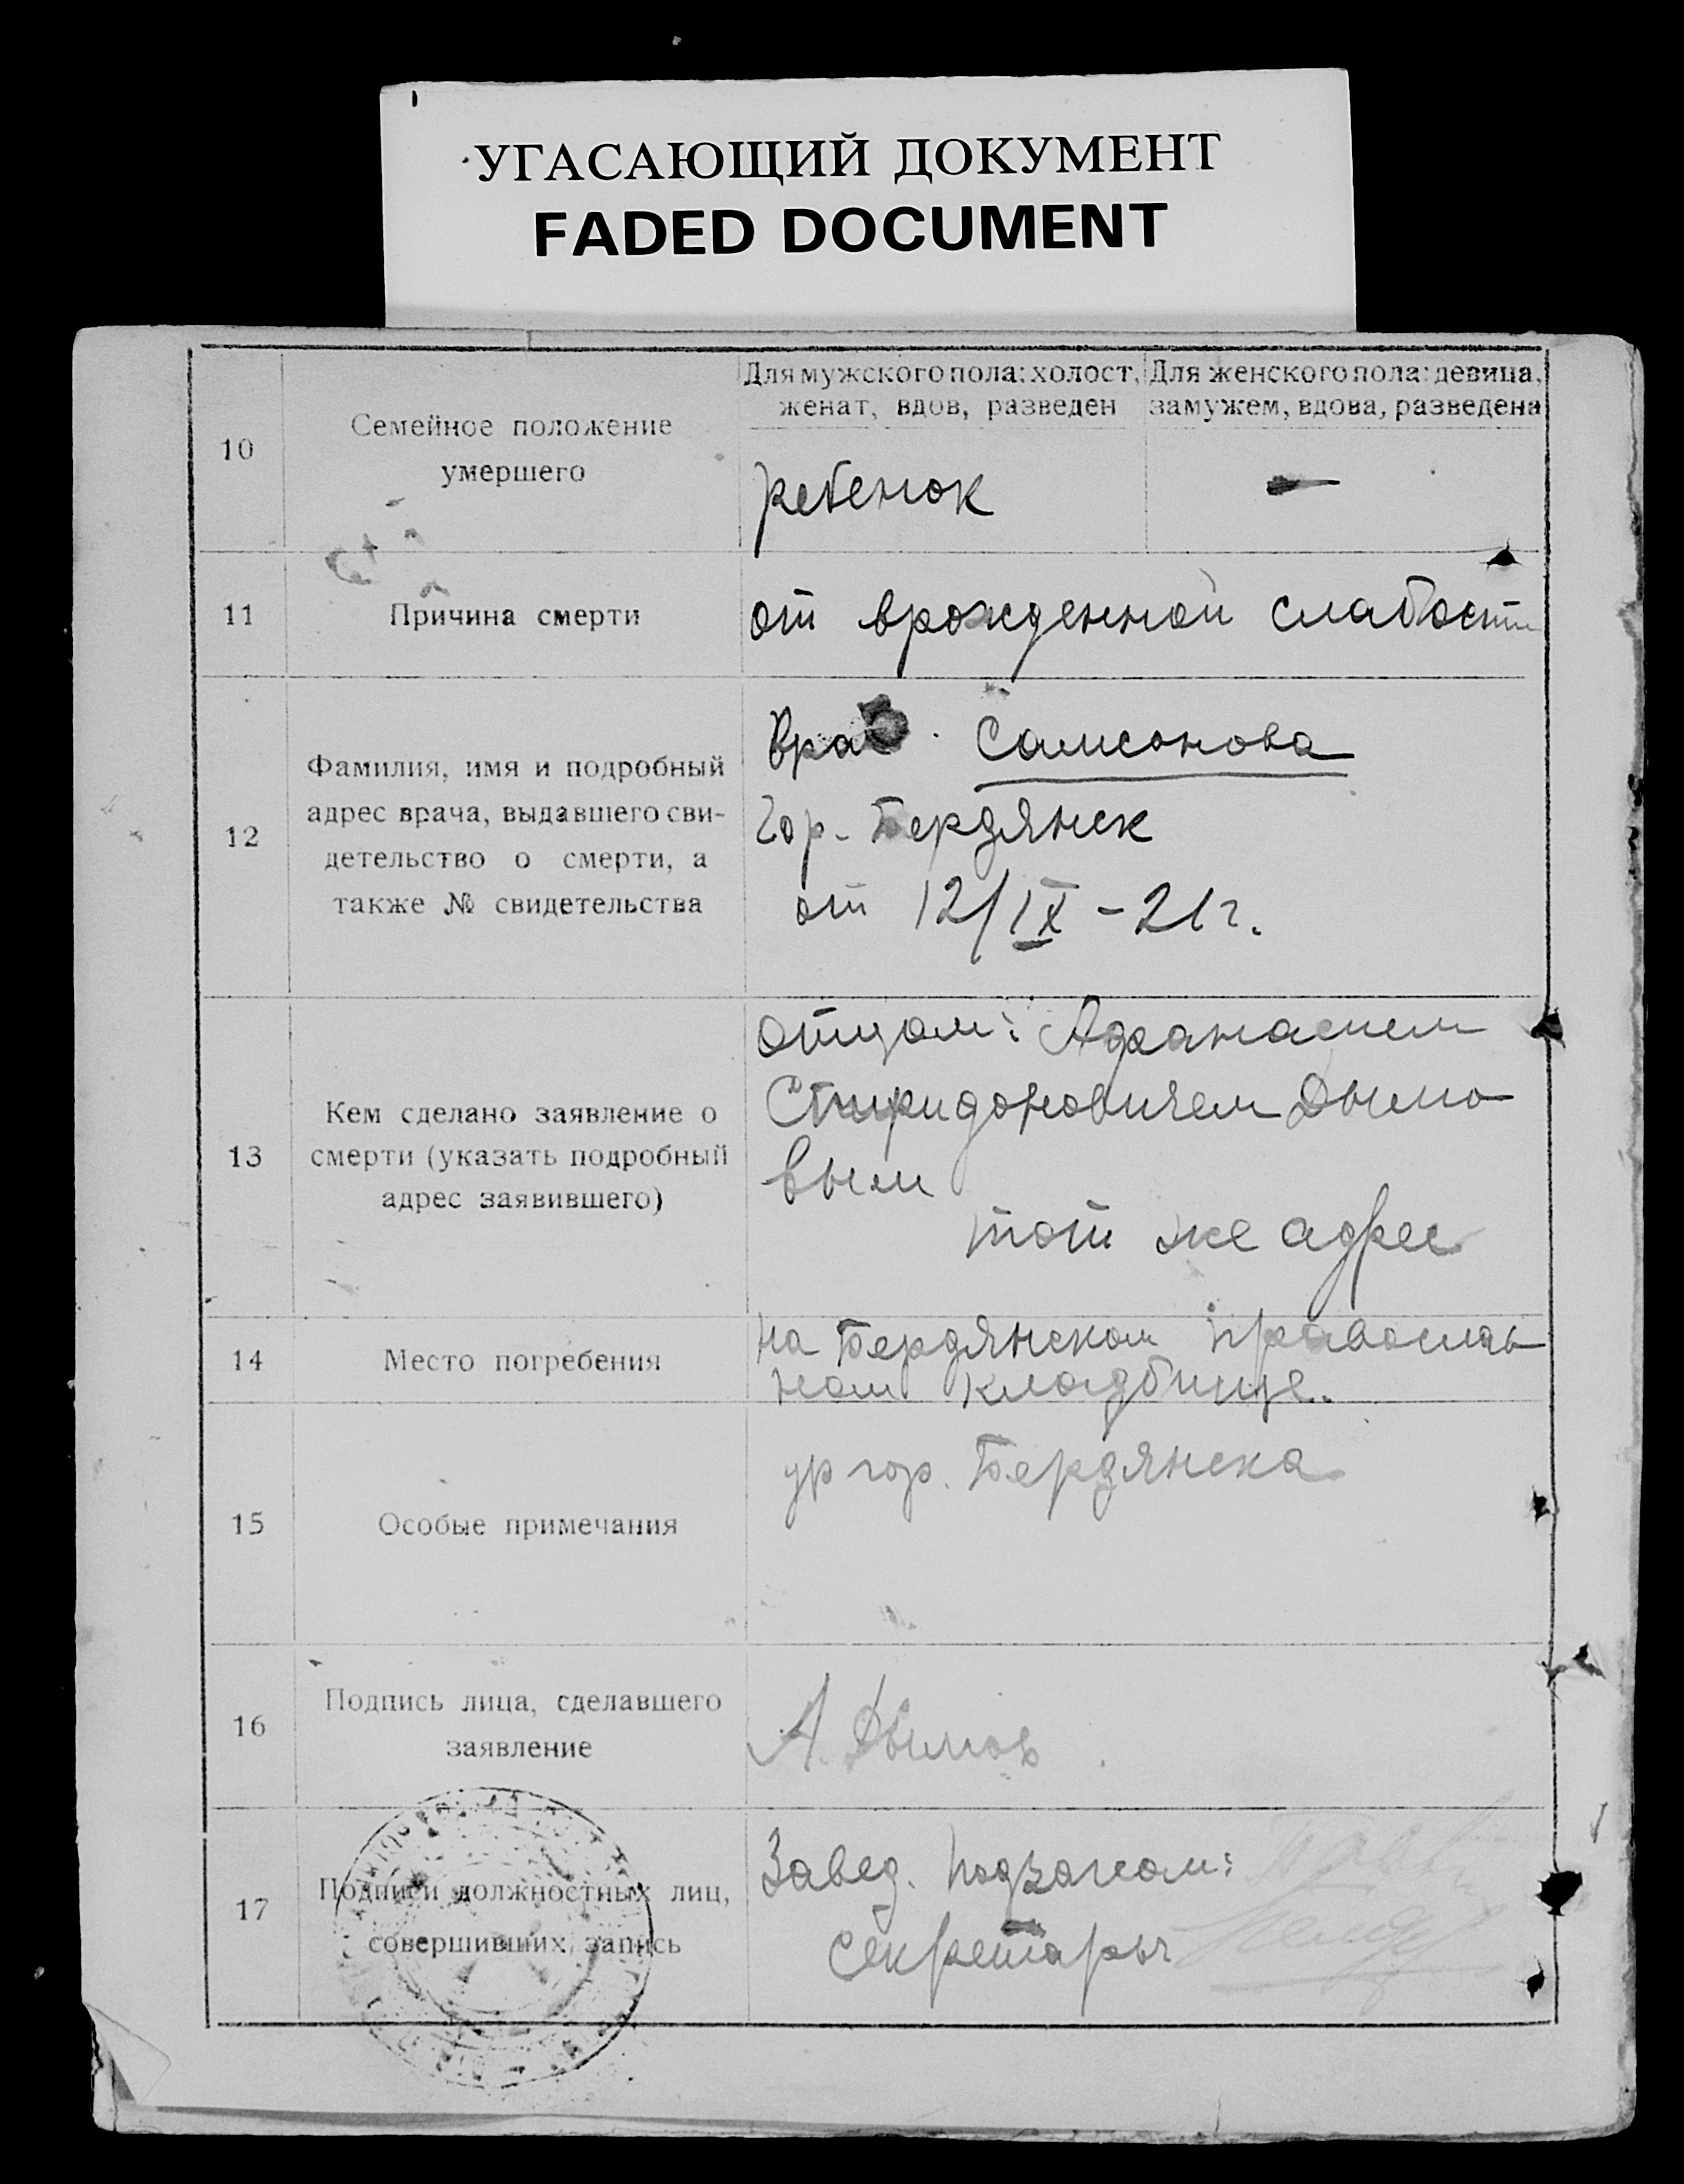 УГАСАЮЩИЙ ДОКУМЕНТ
FADED DOCUMENT
10
Семейное положение
умершего
Для мужского пола: холост,
женат, вдов, разведен
Для женского пола: девица,
замужем, вдова, разведена
ребенок
—
11
Причина смерти
от врожденной слабости
12
Фамилия, имя и подробный
адрес врача, выдавшего сви-
детельство о смерти, а
также № свидетельства
Врач Самсонова
Гор. Бердянск
от 12/IX – 21 г.
13
Кем сделано заявление о
смерти (указать подробный
адрес заявившего)
отцом: Афанасием
Спиридоновичем Дымо
вым
тот же адрес
14
Место погребения
на Бердянском православ
ном кладбище.
15
Особые примечания
ур гор. Бердянска
16
Подпись лица, сделавшего
заявление
А. Дымов
17
Подписи должностных лиц,
совершивших запись
Завед. Подзагсом:
Секретарь